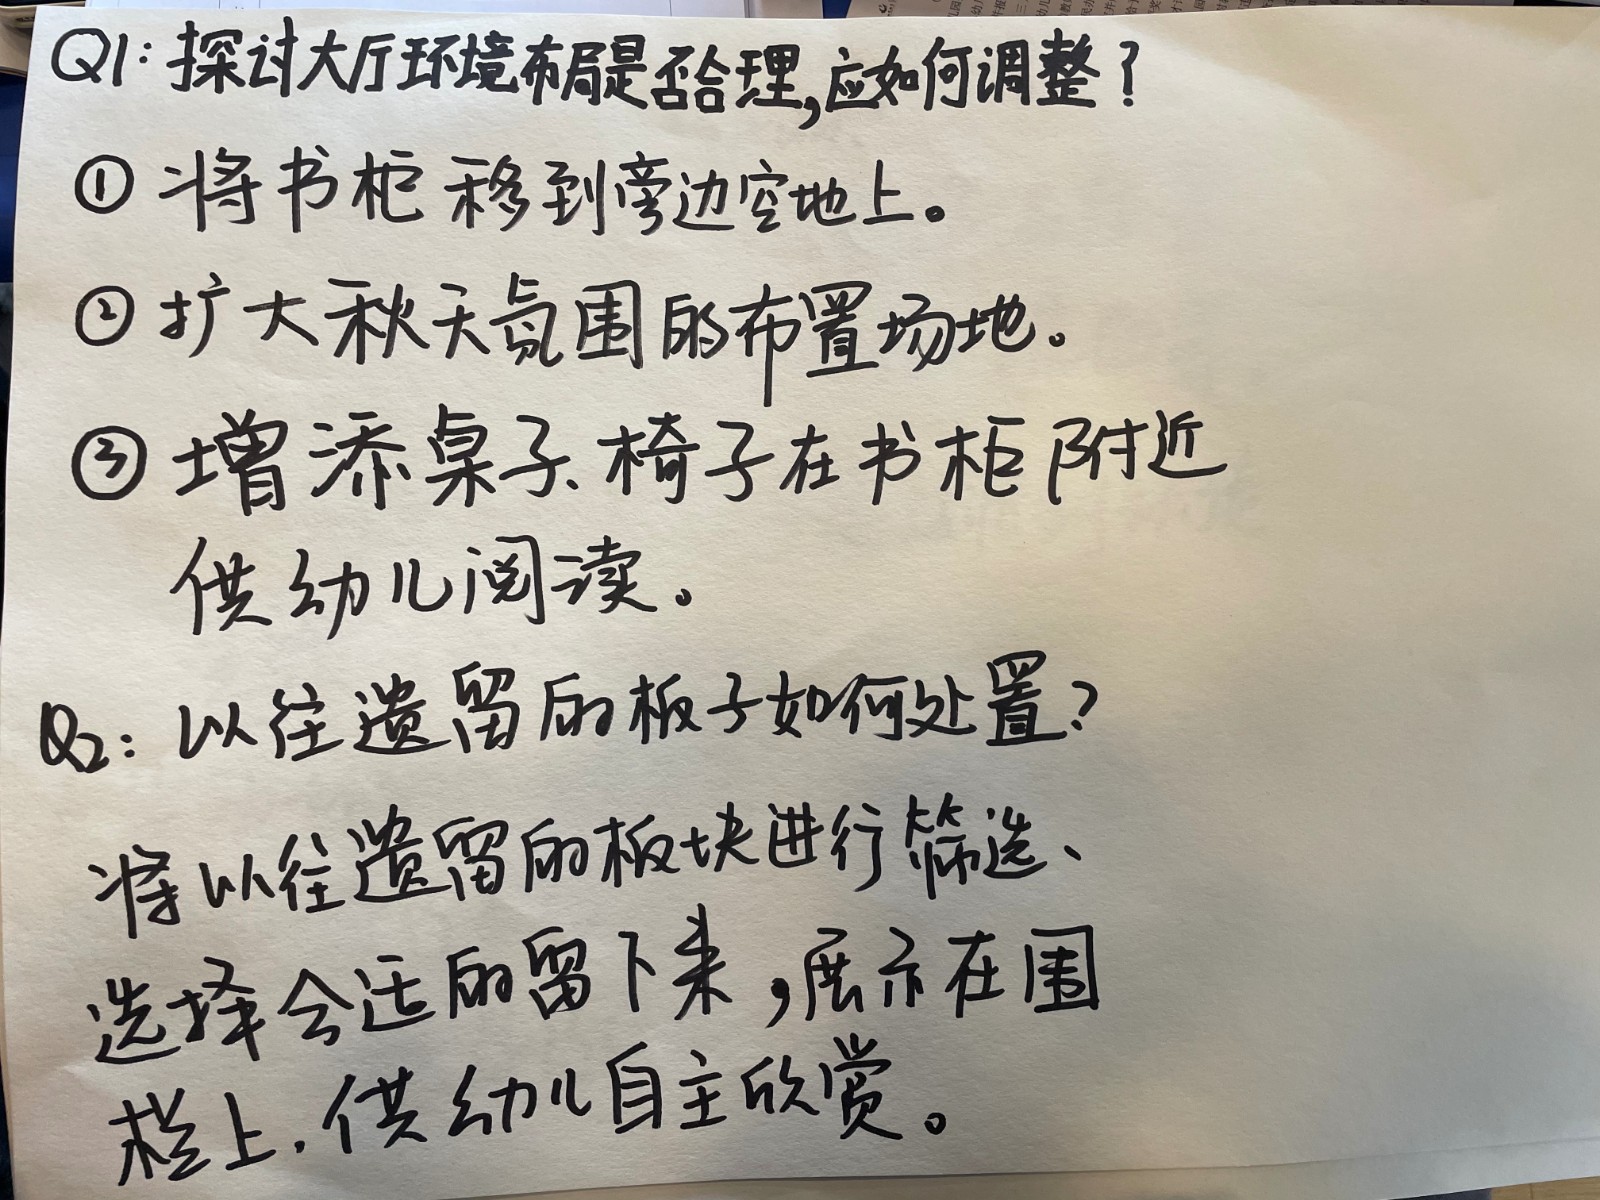 Q1:探讨大厅环境布局是否合理,应如何调整?
① 将书柜移到旁边空地上。
② 扩大秋天氛围的布置场地。
③ 增添桌子、椅子在书柜附近
供幼儿阅读。
Q2:以往遗留的板子如何处置?
将以往遗留的板块进行筛选、
选择合适的留下来,展示在围
栏上.供幼儿自主欣赏。